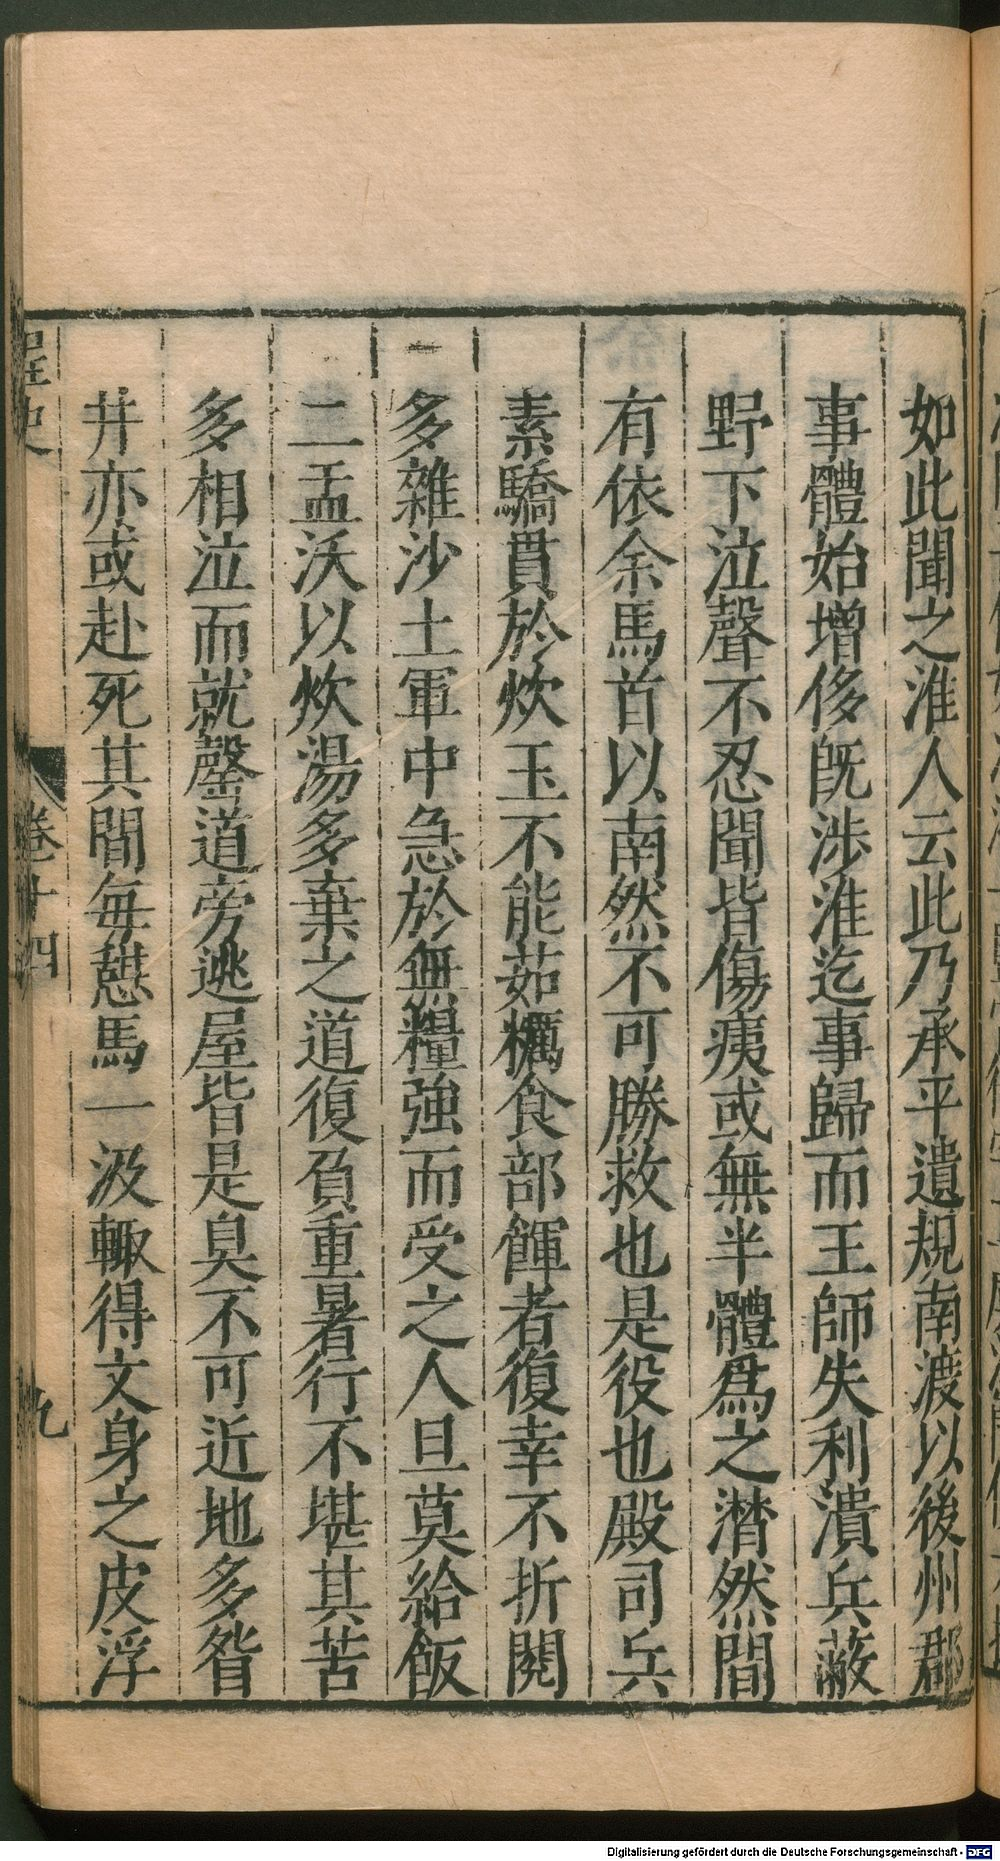 如此聞之淮人云此乃承平遺規南渡以後州郡
事體始增侈既涉淮迄事歸而王師失利潰兵蔽
野下泣聲不忍聞皆傷痍或無半體爲之潸然間
有依余馬首以南然不可勝救也是役也殿司兵
素驕貫於炊玉不能茹糲食部餫者復幸不折閱
多雜沙土軍中急於無糧強而受之人旦莫給飯
二盂沃以炊湯多棄之道復負重暑行不堪其苦
多相泣而就罄道旁逃屋皆是臭不可近地多眢
井亦或赴死其間每憇馬一汲輙得文身之皮浮
桯史
卷十四
九
Digitalisierung gefördert durch die Deutsche Forschungsgemeinschaft - DFG